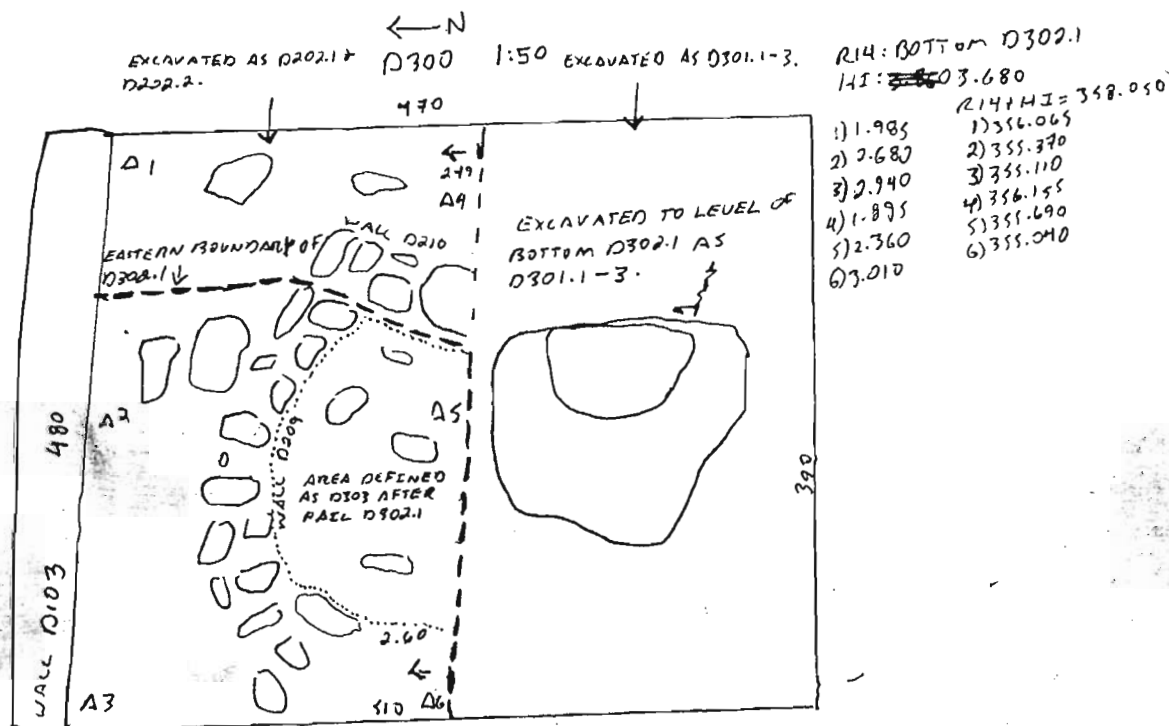 ← N
EXCAVATED AS D202.1 &
D202.2.
D300 1:50
EXCAVATED AS D301.1-3.
470
R14: BOTTOM D302.1
HI: 3.680
R14+HI = 358.050
1) 1.985
2) 2.680
3) 2.940
4) 1.895
5) 2.360
6) 3.010
1) 356.065
2) 355.370
3) 355.110
4) 356.155
5) 355.690
6) 355.040
Δ1
Δ4
WALL D210
EASTERN BOUNDARY OF
D302.1
EXCAVATED TO LEVEL OF
BOTTOM D302.1 AS
D301.1-3.
Δ2
Δ5
480
WALL D209
AREA DEFINED
AS D303 AFTER
PAIL D302.1
390
WALL D103
2.60
Δ3
510
Δ6